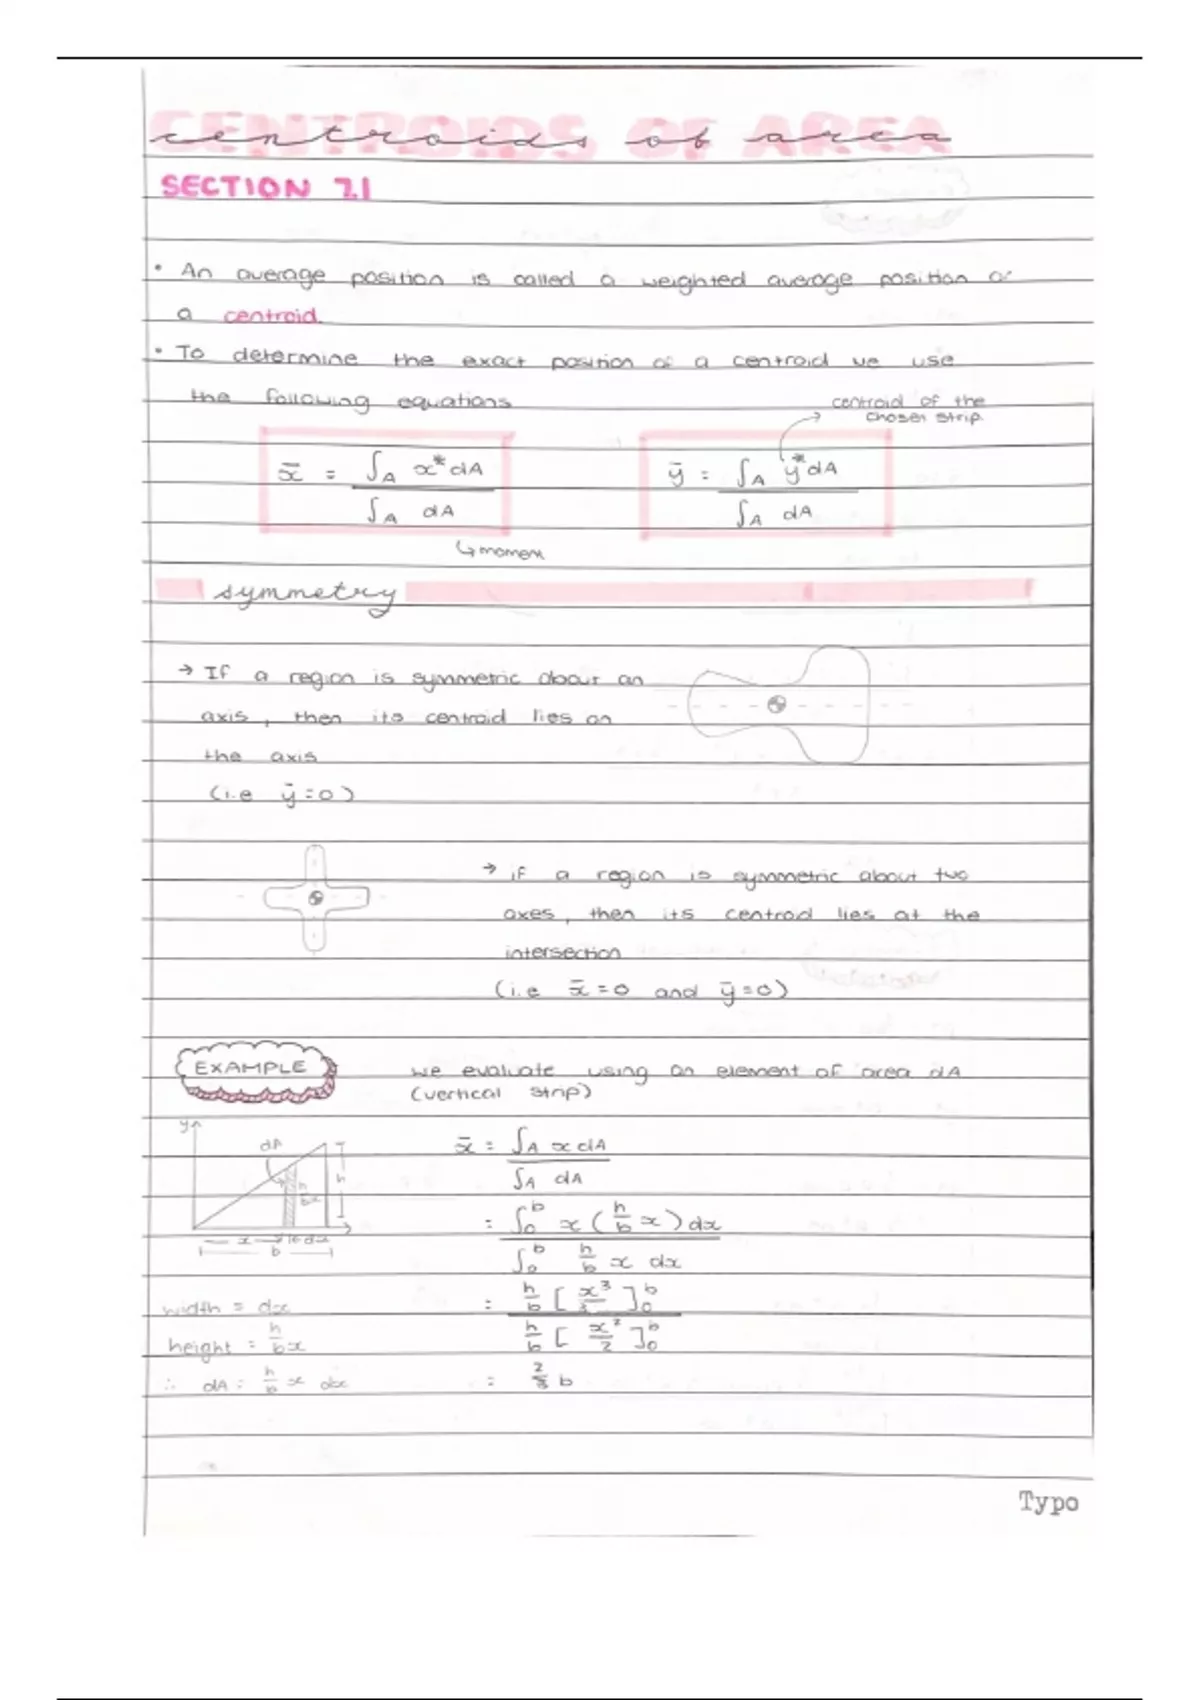 centroids of area
SECTION 7.1
• An average position is called a weighted average position or
a centroid.
• To determine the exact position of a centroid we use
the following equations
centroid of the
chosen strip.
x̄ = ∫A x* dA / ∫A dA
ȳ = ∫A y* dA / ∫A dA
↳ moment
symmetry
→ If a region is symmetric about an
axis, then its centroid lies on
the axis
(i.e ȳ = 0)
→ if a region is symmetric about two
axes, then its centroid lies at the
intersection
(i.e x̄ = 0 and ȳ = 0)
EXAMPLE
we evaluate using an element of area dA
(vertical strip)
y
dA
h
h/b x
x
dx
b
x̄ = ∫A x dA / ∫A dA
= ∫0^b x (h/b x) dx / ∫0^b h/b x dx
width = dx
= h/b [x³/3]0^b / h/b [x²/2]0^b
height = h/b x
∴ dA = h/b x dx
= 2/3 b
Typo